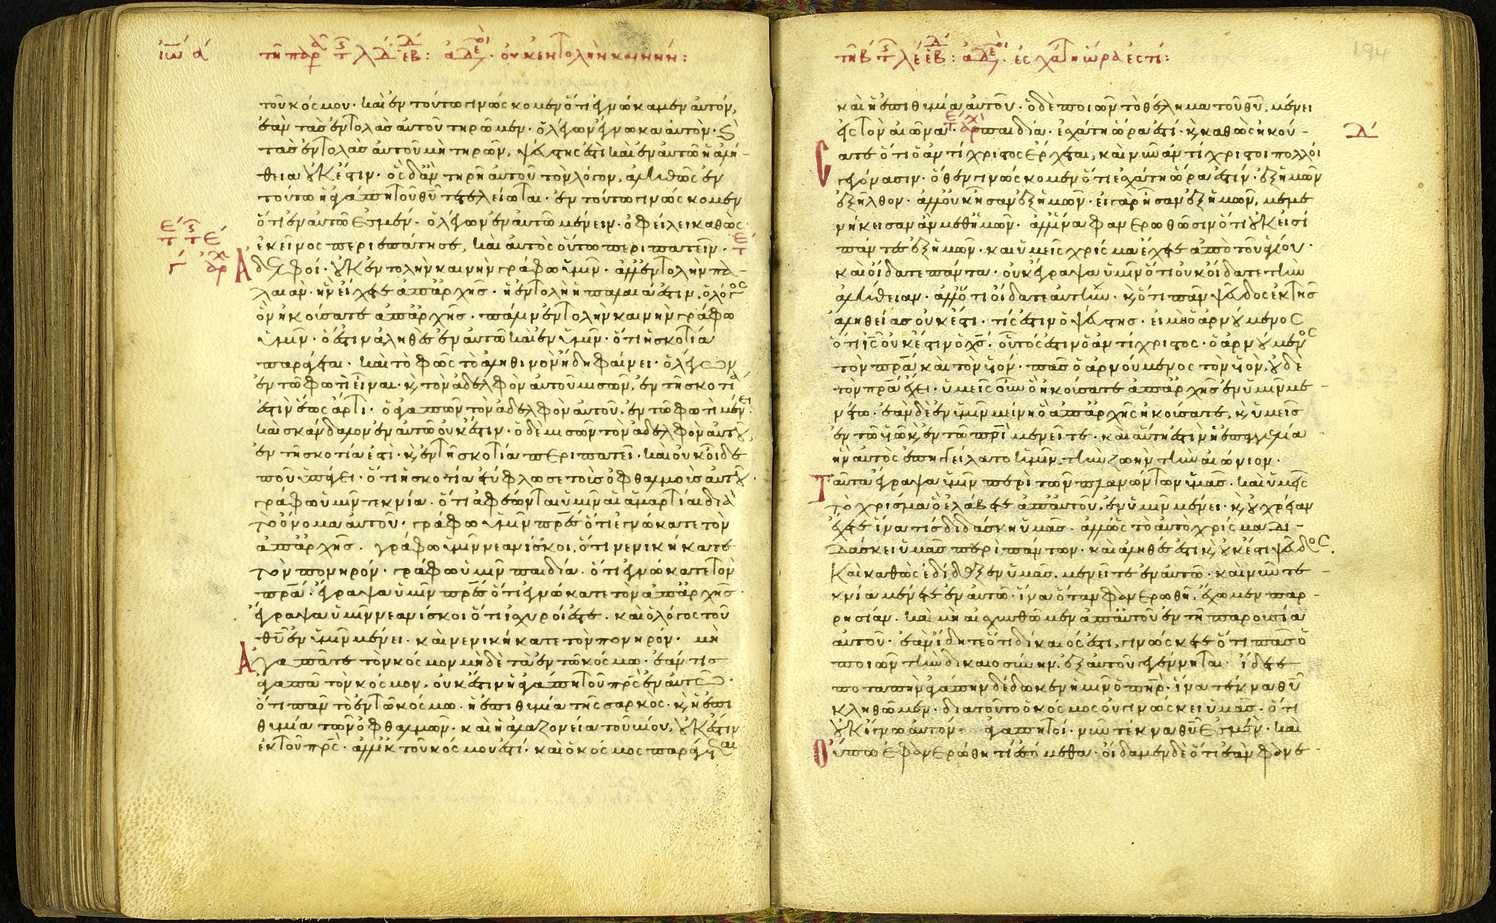 ἰω̅ ά τῆ παρ λδ ἑβ: ἀδε· οὐκ ἐντολὴν καινήν:
τοῦ κόσμου· καὶ ἐν τούτω γινώσκομεν ὅτι ἐγνώκαμεν αὐτόν,
ἐὰν τὰς ἐντολὰς αὐτοῦ τηρῶμεν· ὁ λέγων ἔγνωκα αὐτὸν· ϗ
τὰς ἐντολὰς αὐτοῦ μὴ τηρῶν, ψεύστης ἐστὶ καὶ ἐν αὐτῶ ἡ ἀλή-
θεια οὐκ ἔστιν· ὃς δἂν τηρῆ αὐτοῦ τὸν λόγον, ἀληθῶς ἐν
τούτω ἡ ἀγάπη τοῦ θ̅υ̅ τετελείωται· ἐν τούτω γινώσκομεν
ὅτι ἐν αὐτῶ ἐσμέν· ὁ λέγων ἐν αὐτῶ μένειν· ὀφείλει καθὼς
ἐκεῖνος περιεπάτησε, καὶ αὐτὸς οὕτω περιπατεῖν·
Ἀδελφοί· οὐκ ἐντολὴν καινὴν γράφω ὑμῖν· ἀλλ' ἐντολὴν πα-
λαιάν· ἣν εἴχετε ἀπἀρχῆς· ἡ ἐντολὴ ἡ παλαιά ἐστιν, ὁ λόγος
ὃν ἠκούσατε ἀπἀρχῆς· πάλιν ἐντολὴν καινὴν γράφω
ὑμῖν· ὅ ἐστιν ἀληθὲς ἐν αὐτῶ καὶ ἐν ὑμῖν· ὅτι ἡ σκοτία
παράγεται· καὶ τὸ φῶς τὸ ἀληθινὸν ἤδη φαίνει· ὁ λέγων
ἐν τῶ φωτὶ εἶναι· ϗ τὸν ἀδελφὸν αὐτοῦ μισῶν, ἐν τῆ σκοτία
ἐστὶν ἕως ἄρτι· ὁ ἀγαπῶν τὸν ἀδελφὸν αὐτοῦ, ἐν τῶ φωτὶ μένει·
καὶ σκάνδαλον ἐν αὐτῶ οὐκ ἔστιν· ὁ δὲ μισῶν τὸν ἀδελφὸν αὐτοῦ,
ἐν τῆ σκοτία ἐστί· ϗ ἐν τῆ σκοτία περιπατεῖ· καὶ οὐκ οἶδε
ποῦ ὑπάγει· ὅτι ἡ σκοτία ἐτύφλωσε τοὺς ὀφθαλμοὺς αὐτοῦ·
γράφω ὑμῖν τεκνία· ὅτι ἀφέωνται ὑμῖν αἱ ἁμαρτίαι διὰ
τὸ ὄνομα αὐτοῦ· γράφω ὑμῖν π̅ρ̅ε̅ς̅ ὅτι ἐγνώκατε τὸν
ἀπἀρχῆς· γράφω ὑμῖν νεανίσκοι, ὅτι νενικήκατε
τὸν πονηρόν· γράφω ὑμῖν παιδία· ὅτι ἐγνώκατε τὸν
π̅ρ̅α̅· ἔγραψα ὑμῖν π̅ρ̅ε̅ς̅ ὅτι ἐγνώκατε τὸν ἀπἀρχῆς·
ἔγραψα ὑμῖν νεανίσκοι ὅτι ἰσχυροί ἐστε· καὶ ὁ λόγος τοῦ
θ̅υ̅ ἐν ὑμῖν μένει· καὶ νενικήκατε τὸν πονηρόν· μὴ
Ἀγαπᾶτε τὸν κόσμον μηδὲ τὰ ἐν τῶ κόσμω· ἐάν τις
ἀγαπᾶ τὸν κόσμον, οὐκ ἔστιν ἡ ἀγάπη τοῦ π̅ρ̅ς̅ ἐν αὐτῶ·
ὅτι πᾶν τὸ ἐν τῶ κόσμω· ἡ ἐπιθυμία τῆς σαρκός· ϗ ἡ ἐπι
θυμία τῶν ὀφθαλμῶν· καὶ ἡ ἀλαζονεία τοῦ βίου, οὐκ ἔστιν
ἐκ τοῦ π̅ρ̅ς̅· ἀλλ' ἐκ τοῦ κόσμου ἐστί· καὶ ὁ κόσμος παράγεται
τῆ β λέ ἑβ: ἀδε· ἐσχάτη ὥρα ἐστί: 194
καὶ ἡ ἐπιθυμία αὐτοῦ· ὁ δὲ ποιῶν τὸ θέλημα τοῦ θ̅υ̅, μένει
εἰς τὸν αἰῶνα· παιδία· ἐσχάτη ὥρα ἐστί· ϗ καθὼς ἠκού-
σατε ὅτι ὁ ἀντίχριστος ἔρχεται, καὶ νῦν ἀντίχριστοι πολλοὶ
γεγόνασιν· ὅθεν γινώσκομεν ὅτι ἐσχάτη ὥρα ἐστίν· ἐξ ἡμῶν
ἐξῆλθον· ἀλλ' οὐκ ἦσαν ἐξ ἡμῶν· εἰ γὰρ ἦσαν ἐξ ἡμῶν, μεμε
νήκεισαν ἂν μεθ ἡμῶν· ἀλλ' ἵνα φανερωθῶσιν ὅτι οὐκ εἰσὶ
πάντες ἐξ ἡμῶν· καὶ ὑμεῖς χρίσμα ἔχετε ἀπὸ τοῦ ἁγίου·
καὶ οἴδατε πάντα· οὐκ ἔγραψα ὑμῖν ὅτι οὐκ οἴδατε τὴν
ἀλήθειαν· ἀλλ' ὅτι οἴδατε αὐτήν· ϗ ὅτι πᾶν ψεῦδος ἐκ τῆς
ἀληθείας οὐκ ἔστι· τίς ἐστιν ὁ ψεύστης· εἰ μὴ ὁ ἀρνούμενος
ὅτι ι̅ς̅ οὐκ ἔστιν ὁ χ̅ς̅· οὗτός ἐστιν ὁ ἀντίχριστος· ὁ ἀρνούμενος
τὸν π̅ρ̅α̅ καὶ τὸν υἱόν· πᾶς ὁ ἀρνούμενος τὸν υἱόν, οὐδὲ
τὸν π̅ρ̅α̅ ἔχει· ὑμεῖς οὖν ὃ ἠκούσατε ἀπἀρχῆς ἐν ὑμῖν με-
νέτω· ἐὰν δὲ ἐν ὑμῖν μείνη ὃ ἀπἀρχῆς ἠκούσατε, ϗ ὑμεῖς
ἐν τῶ υἱῶ ϗ ἐν τῶ π̅ρ̅ι̅ μενεῖτε· καὶ αὕτη ἐστὶν ἡ ἐπαγγελία
ἣν αὐτὸς ἐπηγγείλατο ὑμῖν, τὴν ζωὴν τὴν αἰώνιον·
Ταῦτα ἔγραψα ὑμῖν περὶ τῶν πλανώντων ὑμᾶς· καὶ ὑμεῖς
τὸ χρίσμα ὃ ἐλάβετε ἀπ αὐτοῦ, ἐν ὑμῖν μένει· ϗ οὐ χρείαν
ἔχετε ἵνα τίς διδάσκη ὑμᾶς· ἀλλ' ὡς τὸ αὐτὸ χρίσμα δι-
δάσκει ὑμᾶς περὶ πάντων· καὶ ἀληθές ἐστι, ϗ οὐκ ἔστι ψεῦδος.
Καὶ καθὼς ἐδίδαξεν ὑμᾶς, μενεῖτε ἐν αὐτῶ· καὶ νῦν τε-
κνία μένετε ἐν αὐτῶ· ἵνα ὅταν φανερωθῆ, ἔχωμεν παρ-
ρησίαν· καὶ μὴ αἰσχυνθῶμεν ἀπ αὐτοῦ ἐν τῆ παρουσία
αὐτοῦ· ἐὰν ἰδῆτε ὅτι δίκαιός ἐστι, γινώσκετε ὅτι πᾶς ὁ
ποιῶν τὴν δικαιοσύνην, ἐξ αὐτοῦ γεγέννηται· ἴδετε
ποταπὴν ἀγάπην δέδωκεν ἡμῖν ὁ π̅η̅ρ̅· ἵνα τέκνα θ̅υ̅
κληθῶμεν· διὰ τοῦτο ὁ κόσμος οὐ γινώσκει ὑμᾶς· ὅτι
οὐκ ἔγνω αὐτόν· ἀγαπητοί· νῦν τέκνα θ̅υ̅ ἐσμέν· καὶ
Οὔπω ἐφανερώθη τί ἐσόμεθα· οἴδαμεν δὲ ὅτι ἐὰν φανε-